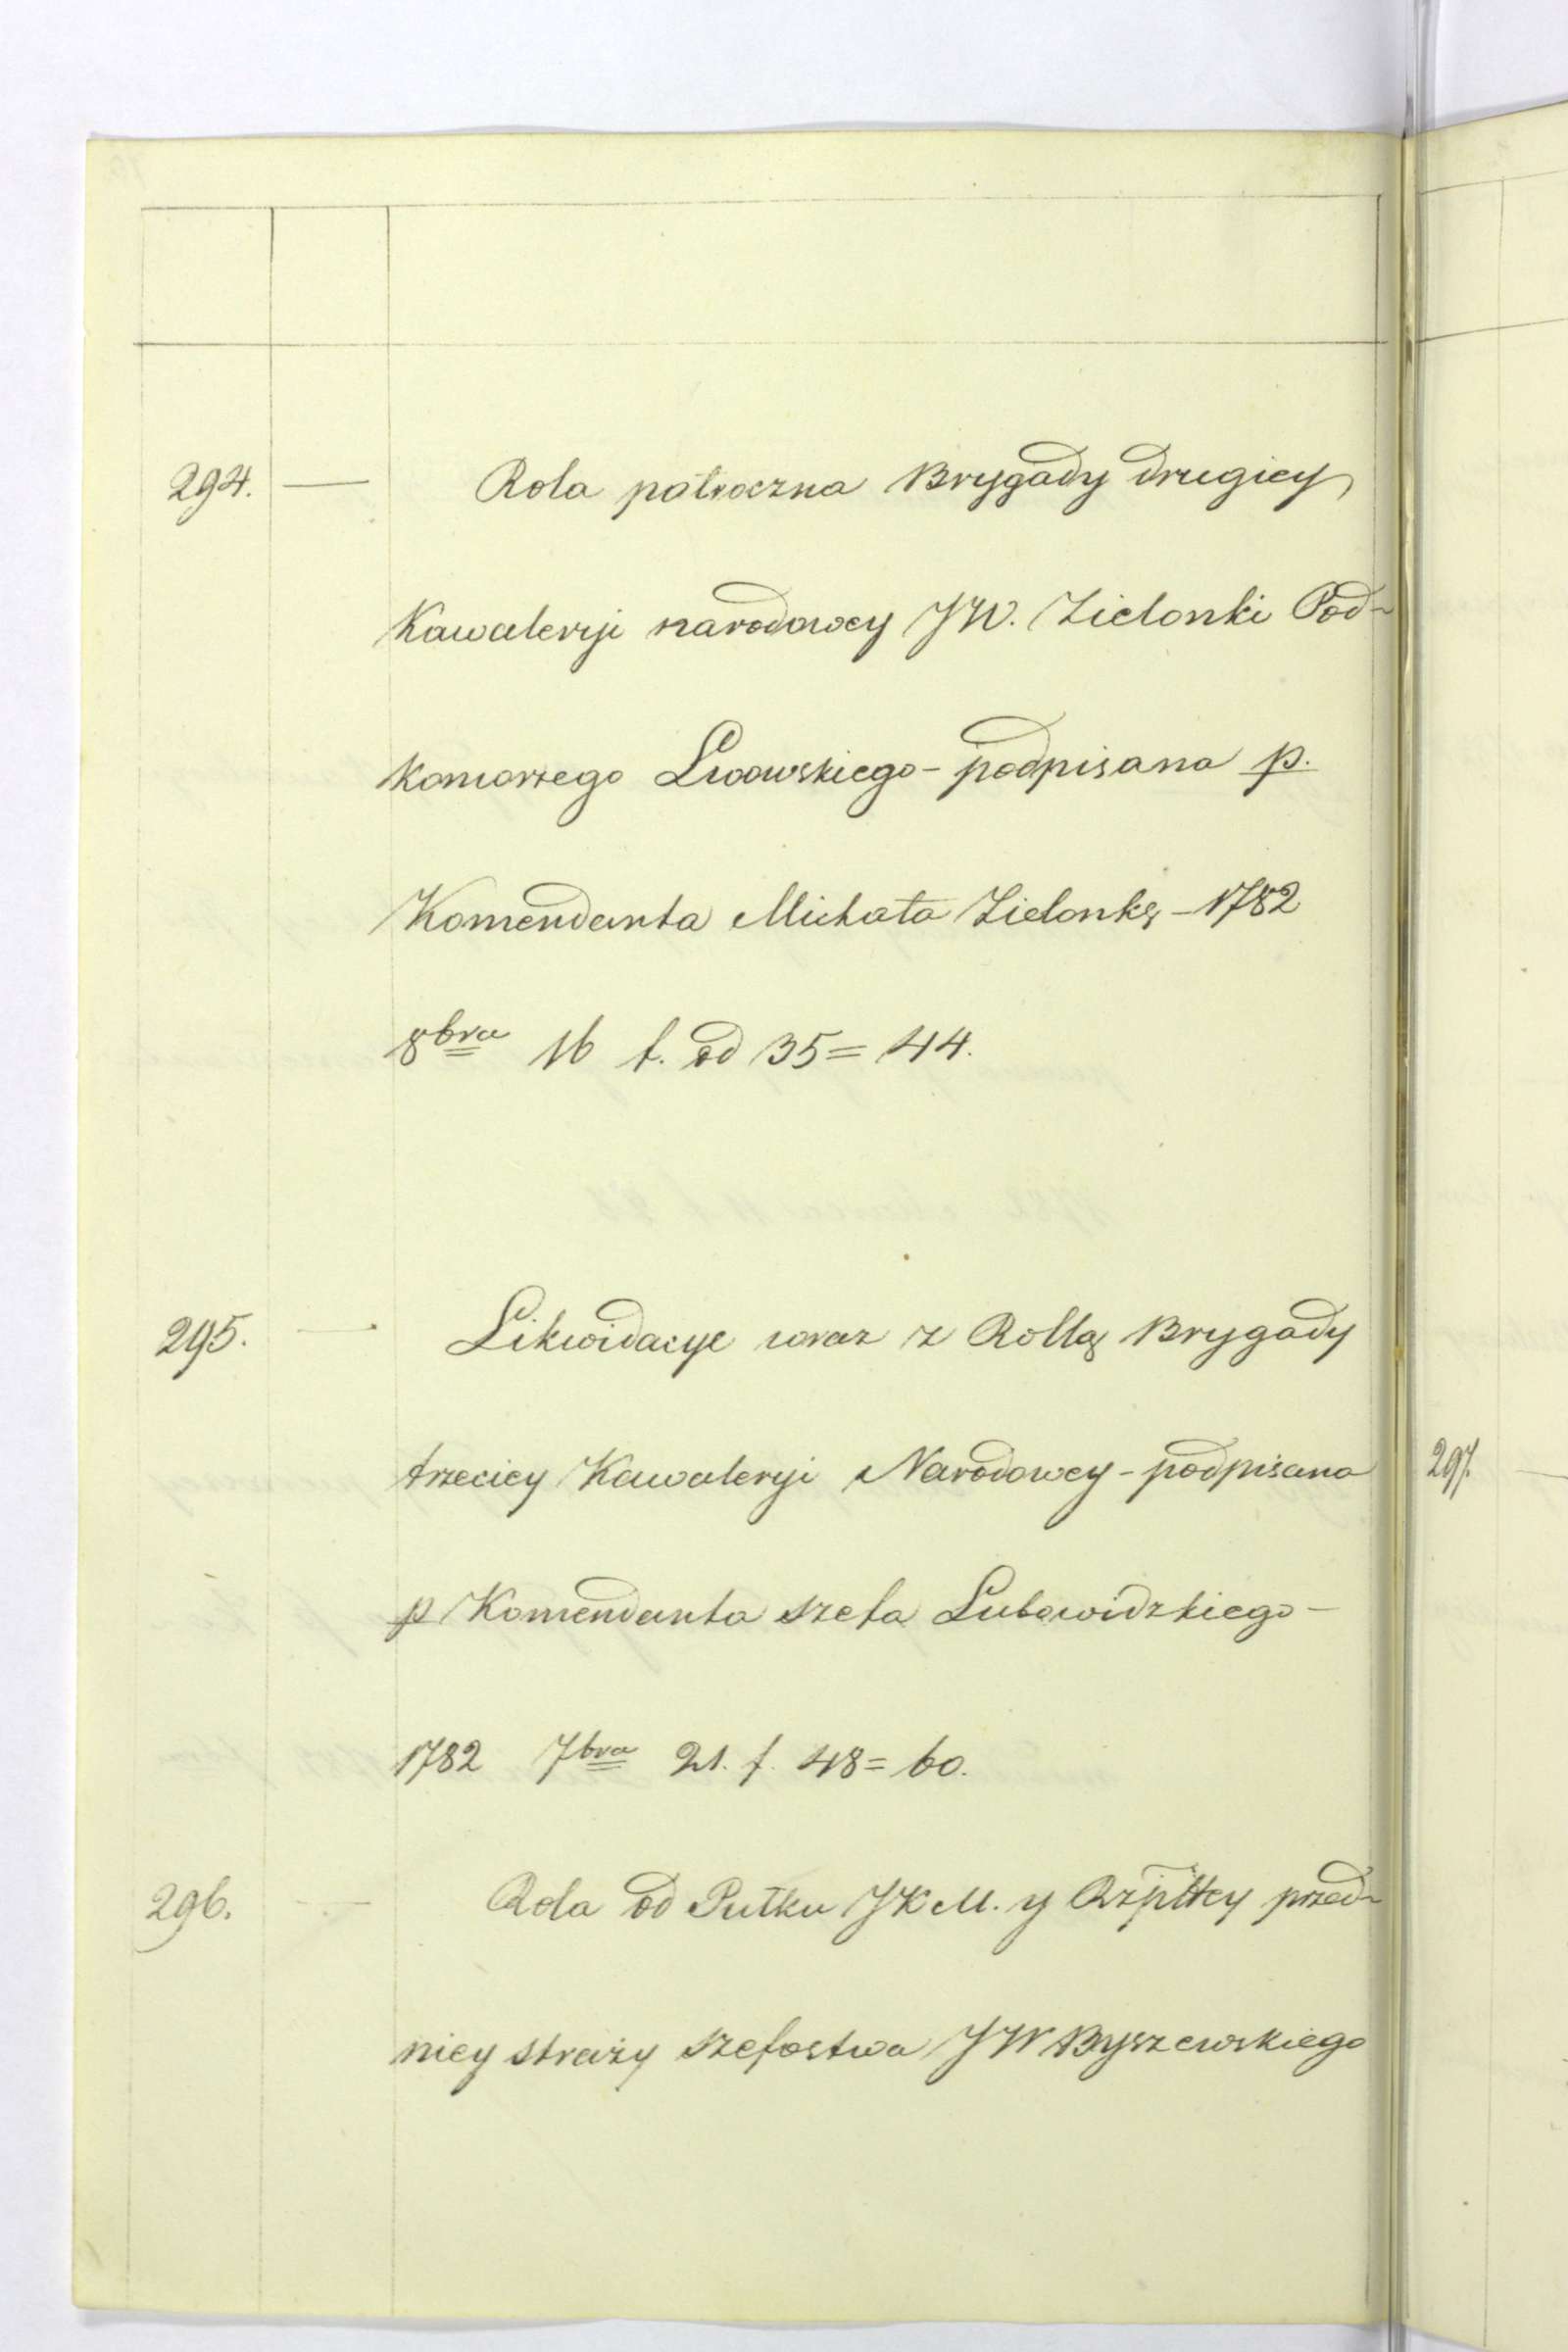 294. — Rola półroczna Brygady drugiey
Kawaleryi narodowey JW. Zielonki Pod-
komorzego Lwowskiego - podpisana p.
Komendanta Michała Zielonkę - 1782
8bra 16 f. od 35 = 44.
295. — Likwidacye wraz z Rollą Brygady
trzeciey Kawaleryi Narodowey - podpisana
p Komendanta szefa Lubowidzkiego -
1782 7bra 21. f. 48 = 60.
297.
296. — Rola od Pułku JKM. y Rzplttey przed-
niey straży szefostwa JW Byszewskiego